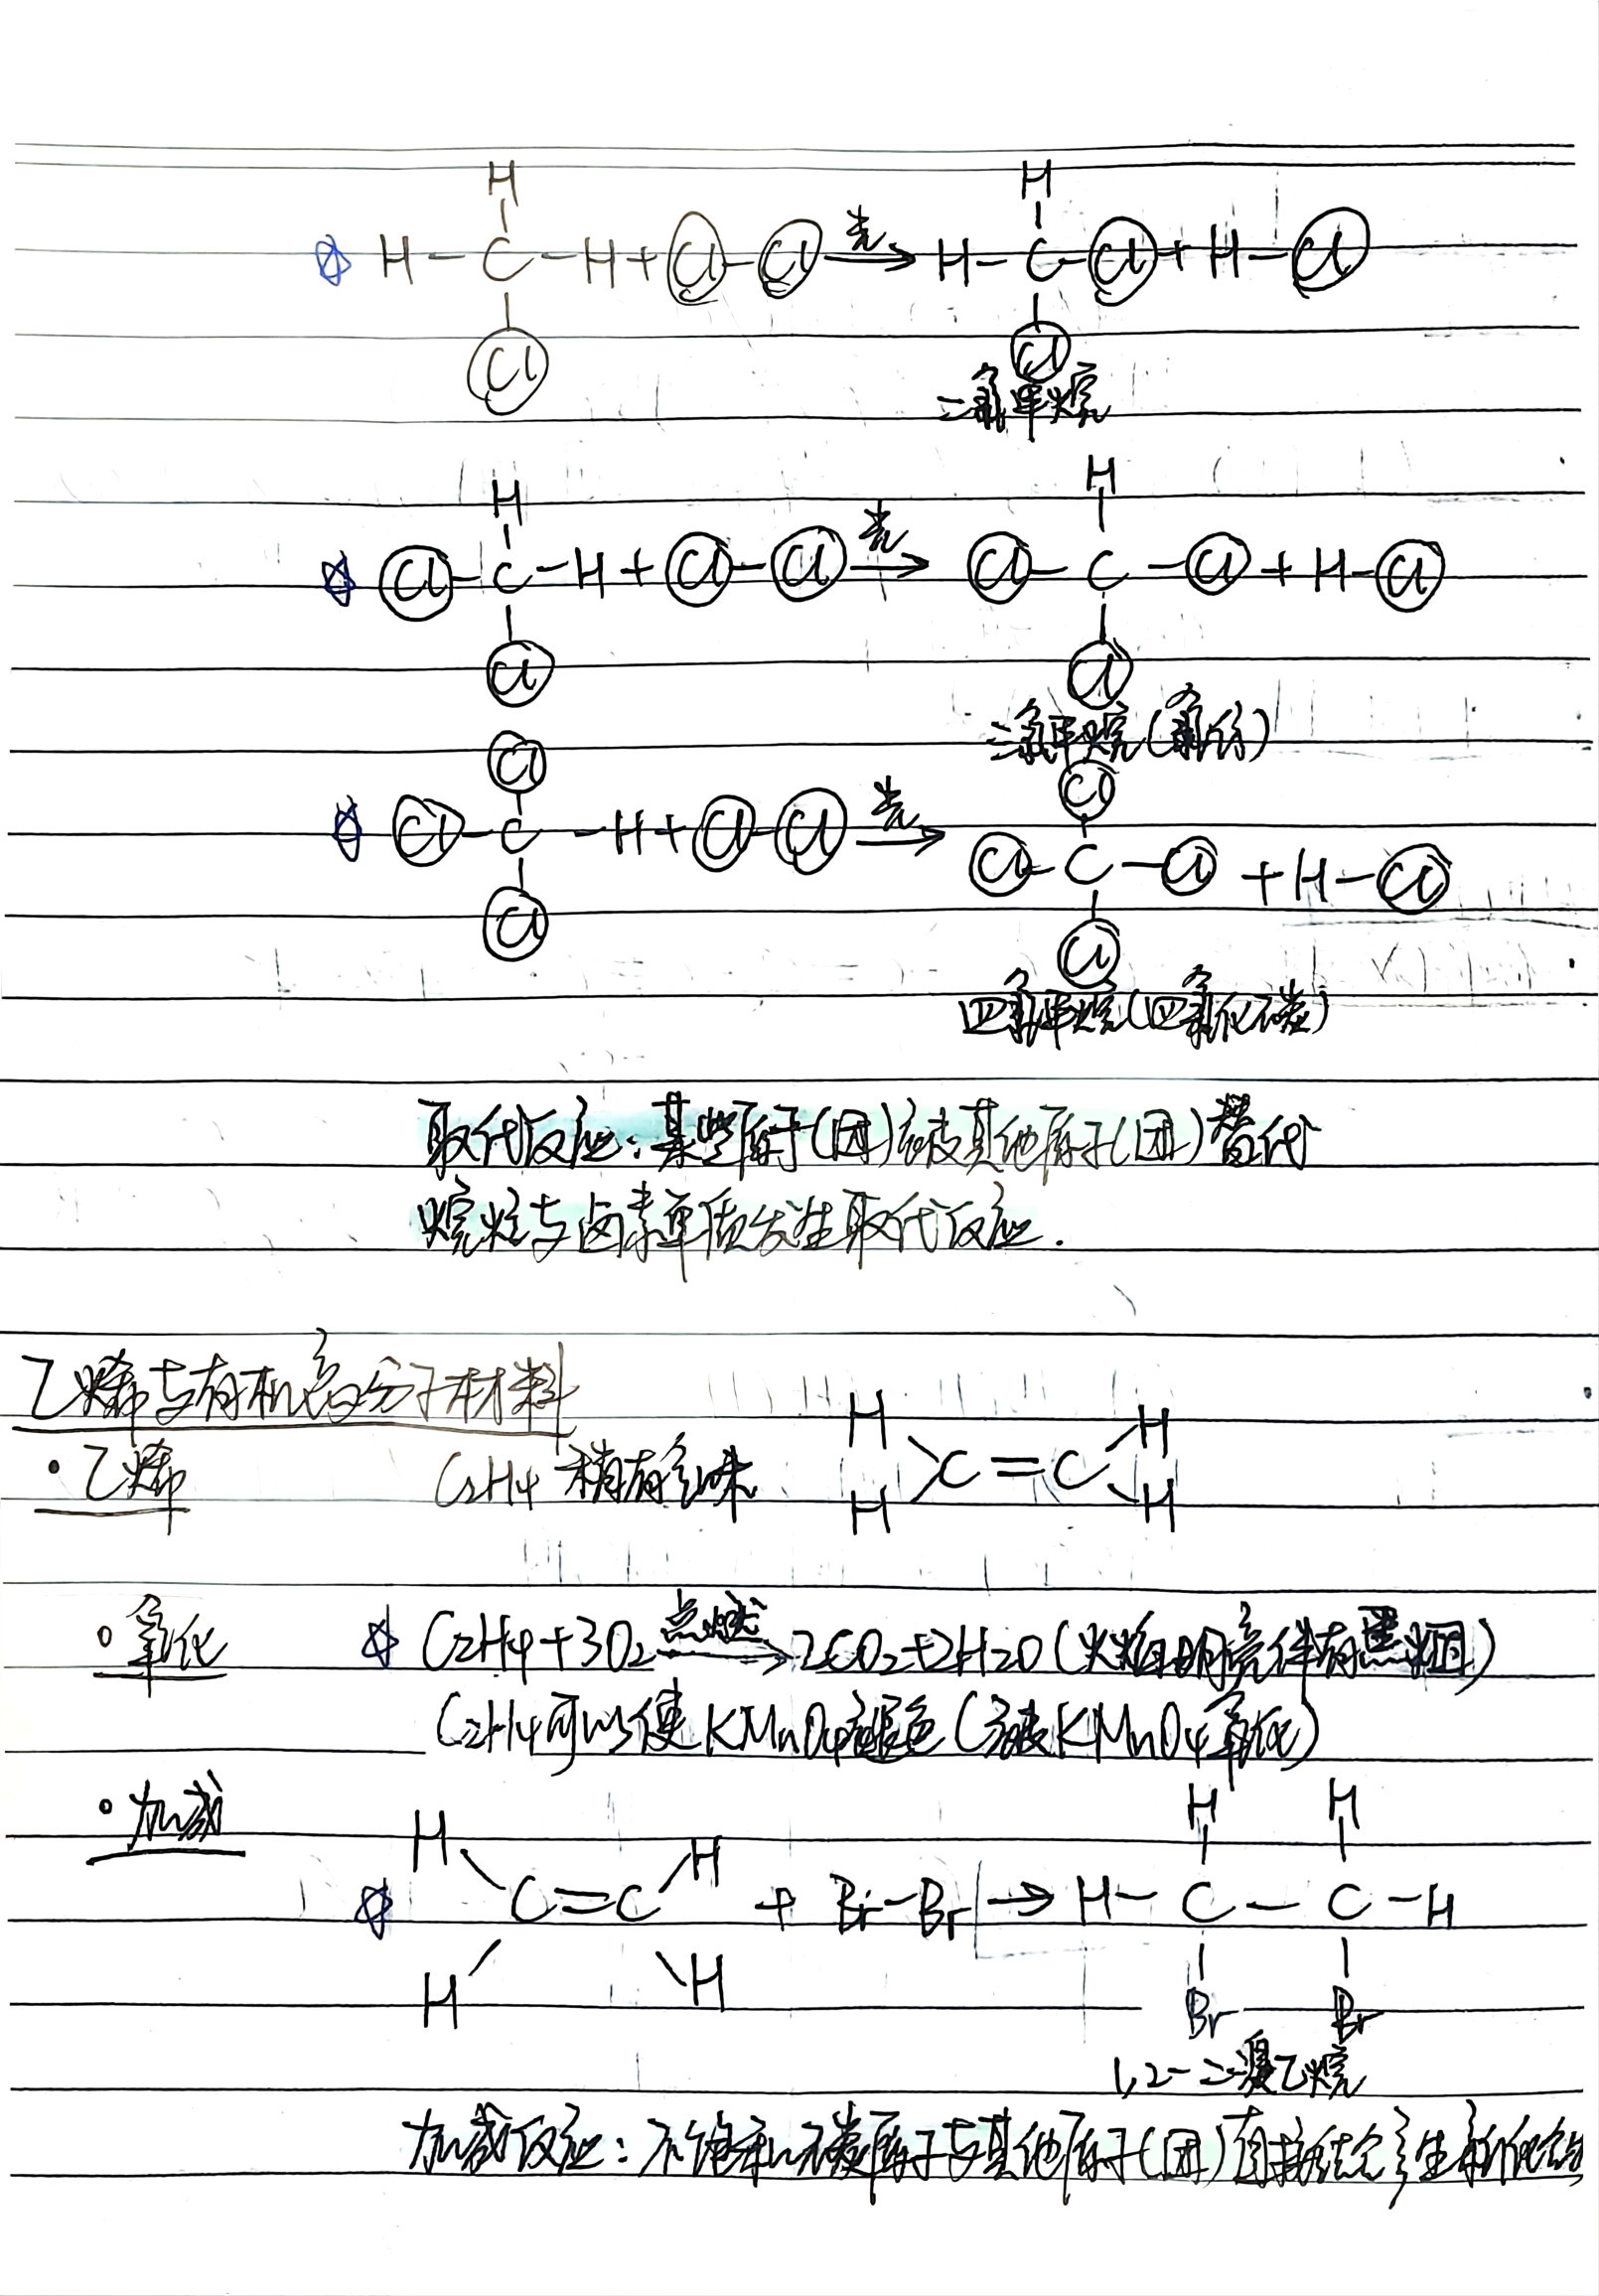 H
☆ H-C-H+Cl-Cl 光→ H-C-Cl+H-Cl
Cl
Cl
二氯甲烷
H
H
☆ Cl-C-H+Cl-Cl 光→ Cl-C-Cl+H-Cl
Cl
Cl
三氯甲烷(氯仿)
Cl
Cl
☆ Cl-C-H+Cl-Cl 光→ Cl-C-Cl+H-Cl
Cl
Cl
四氯甲烷(四氯化碳)
取代反应:某些原子(团)被其他原子(团)替代
烷烃与卤素单质发生取代反应.
乙烯与有机高分子材料
·乙烯 C2H4 稍有气味
H H
C=C
H H
。氧化 ☆ C2H4+3O2 点燃→ 2CO2+2H2O (火焰明亮伴有黑烟)
C2H4可以使KMnO4褪色(被KMnO4氧化)
。加成
H H H H
☆ C=C + Br-Br → H-C-C-H
H H Br Br
1,2-二溴乙烷
加成反应:不饱和碳原子与其他原子(团)直接结合生新化